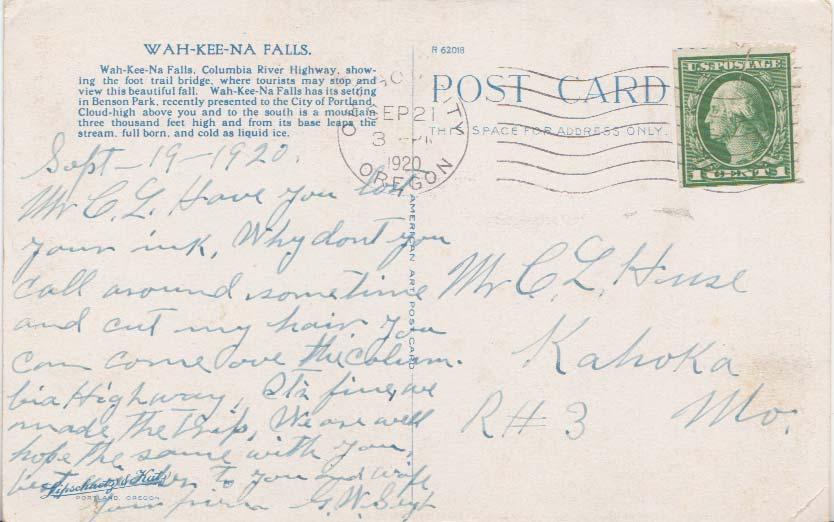 WAH-KEE-NA FALLS.
Wah-Kee-Na Falls, Columbia River Highway, show-
ing the foot trail bridge, where tourists may stop and
view this beautiful fall. Wah-Kee-Na Falls has its setting
in Benson Park, recently presented to the City of Portland.
Cloud-high above you and to the south is a mountain
three thousand feet high and from its base leaps the
stream, full born, and cold as liquid ice.
R 62018
POST CARD
THIS SPACE FOR ADDRESS ONLY.
SEP 21
3
1920
OREGON
U.S. POSTAGE
1 CENTS 1
Sept - 19 - 1920.
Mr C. L. Have you lost
your ink, Why dont you
call around sometime
and cut my hair, you
can come ove the Colum-
bia Highway, Its fine, we
made the trip, We are well
hope the same with you,
best to you and wife
your G. W.
AMERICAN ART POST CARD
Mr C. L. Huse
Kahoka
R # 3 Mo.
Lipschuetz & Katz
PORTLAND, OREGON